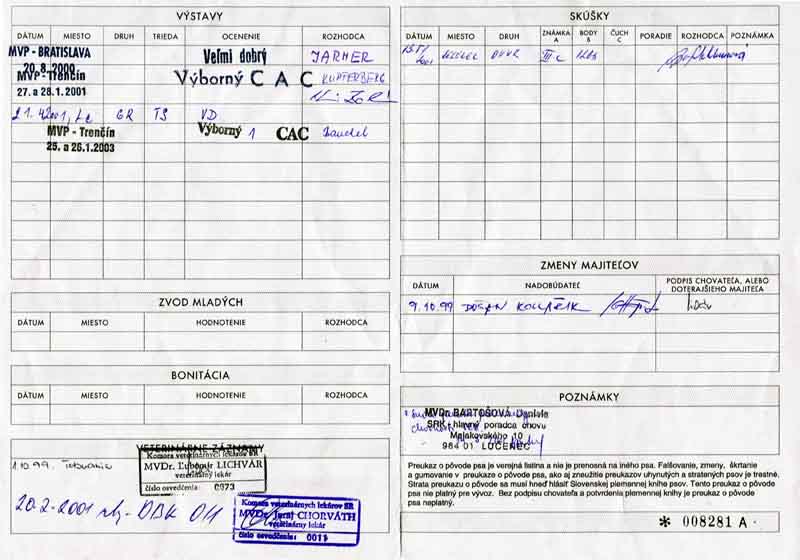 VÝSTAVY
DÁTUM MIESTO DRUH TRIEDA OCENENIE ROZHODCA
MVP - BRATISLAVA
20.8.2000 Veľmi dobrý JARMER
MVP - Trenčín Výborný C A C KUPFERBERG
27. a 28.1.2001
VD
MVP - Trenčín Výborný 1 CAC
25. a 26.1.2003
ZVOD MLADÝCH
DÁTUM MIESTO HODNOTENIE ROZHODCA
BONITÁCIA
DÁTUM MIESTO HODNOTENIE ROZHODCA
VETERINÁRNE ZÁZNAMY
Komora veterinárnych lekárov SR
1.10.99. MVDr. Ľubomír LICHVÁR
veterinárny lekár
číslo osvedčenia: 0973
20.2-2001
Komora veterinárnych lekárov SR
MVDr. Juraj CHORVÁTH
veterinárny lekár
číslo osvedčenia: 0011
SKÚŠKY
DÁTUM MIESTO DRUH ZNÁMKA A BODY B ČUCH C PORADIE ROZHODCA POZNÁMKA
2001 III.c
ZMENY MAJITEĽOV
DÁTUM NADOBÚDATEĽ PODPIS CHOVATEĽA, ALEBO DOTERAJŠIEHO MAJITEĽA
9.10.99 DUŠAN
POZNÁMKY
MVDr. BARTOŠOVÁ Daniela
SRK - hlavný poradca chovu
Majakovského 10
984 01 LUČENEC
Preukaz o pôvode psa je verejná listina a nie je prenosná na iného psa. Falšovanie, zmeny, škrtanie
a gumovanie v preukaze o pôvode psa, ako aj zneužitie preukazov uhynutých a stratených psov je trestné.
Strata preukazu o pôvode psa sa musí hneď hlásiť Slovenskej plemennej knihe psov. Tento preukaz o pôvode
psa nie je platný pre vývoz. Bez podpisu chovateľa a potvrdenia plemennej knihy je preukaz o pôvode
psa neplatný.
* 008281 A